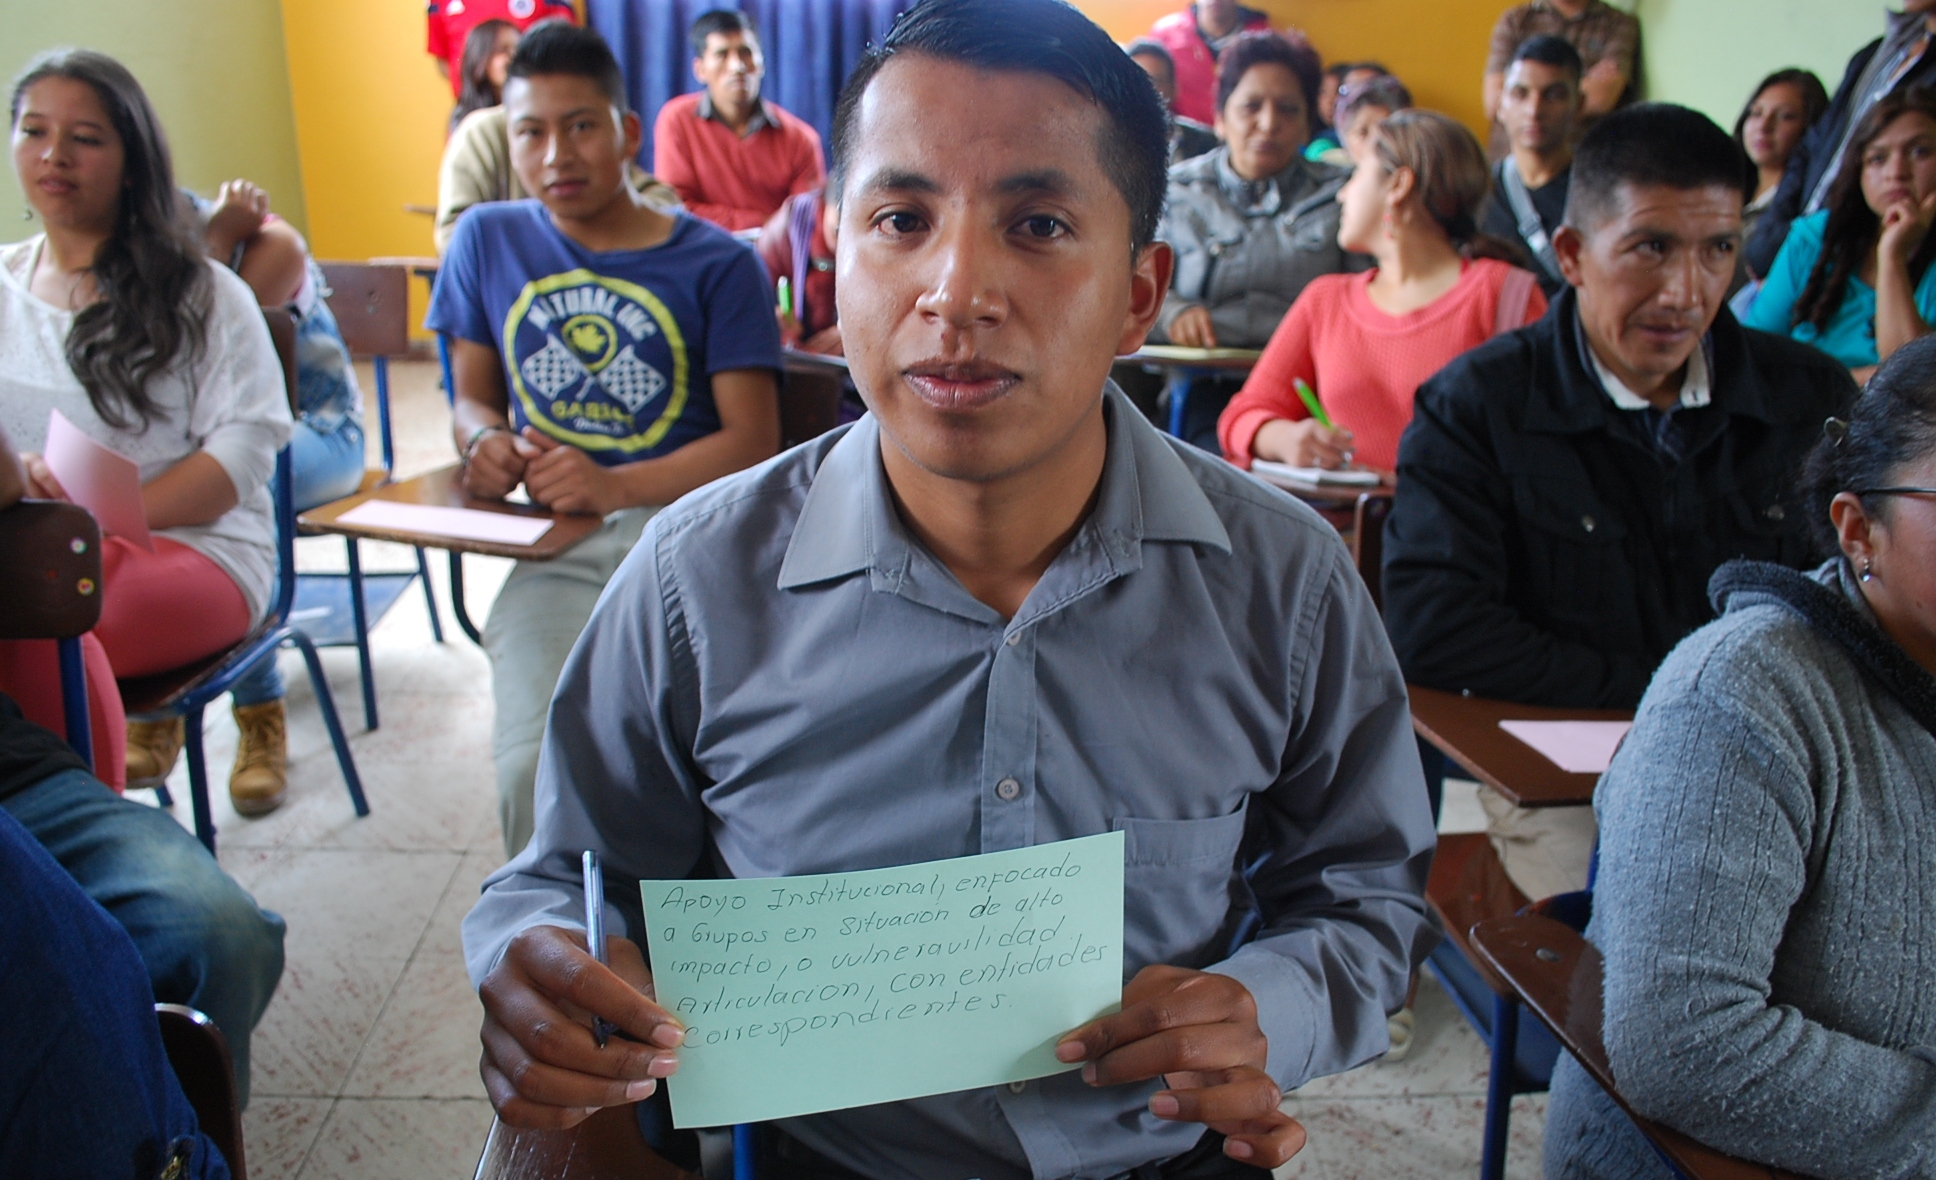 NATURAL INC
Apoyo Institucional, enfocado
a Grupos en situacion de alto
impacto, o vulneravilidad
Articulacion, con entidades
Correspondientes.